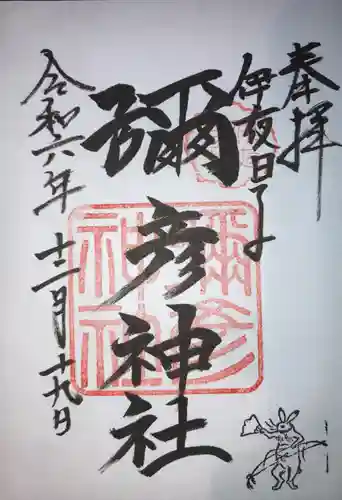 奉拝
伊夜日子
彌彦神社
令和六年
十二月十九日
彌彦
神社